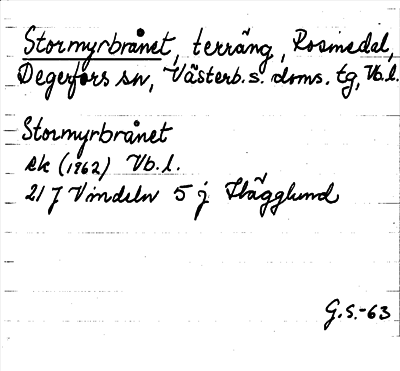 Stormyrbrånet, terräng, Rosinedal,
Degerfors sn, Västerb. s. doms. tg, Vb.l.
Stormyrbrånet
ek (1962) Vb. l.
21 J Vindeln 5 j Hägglund
G.S.-63